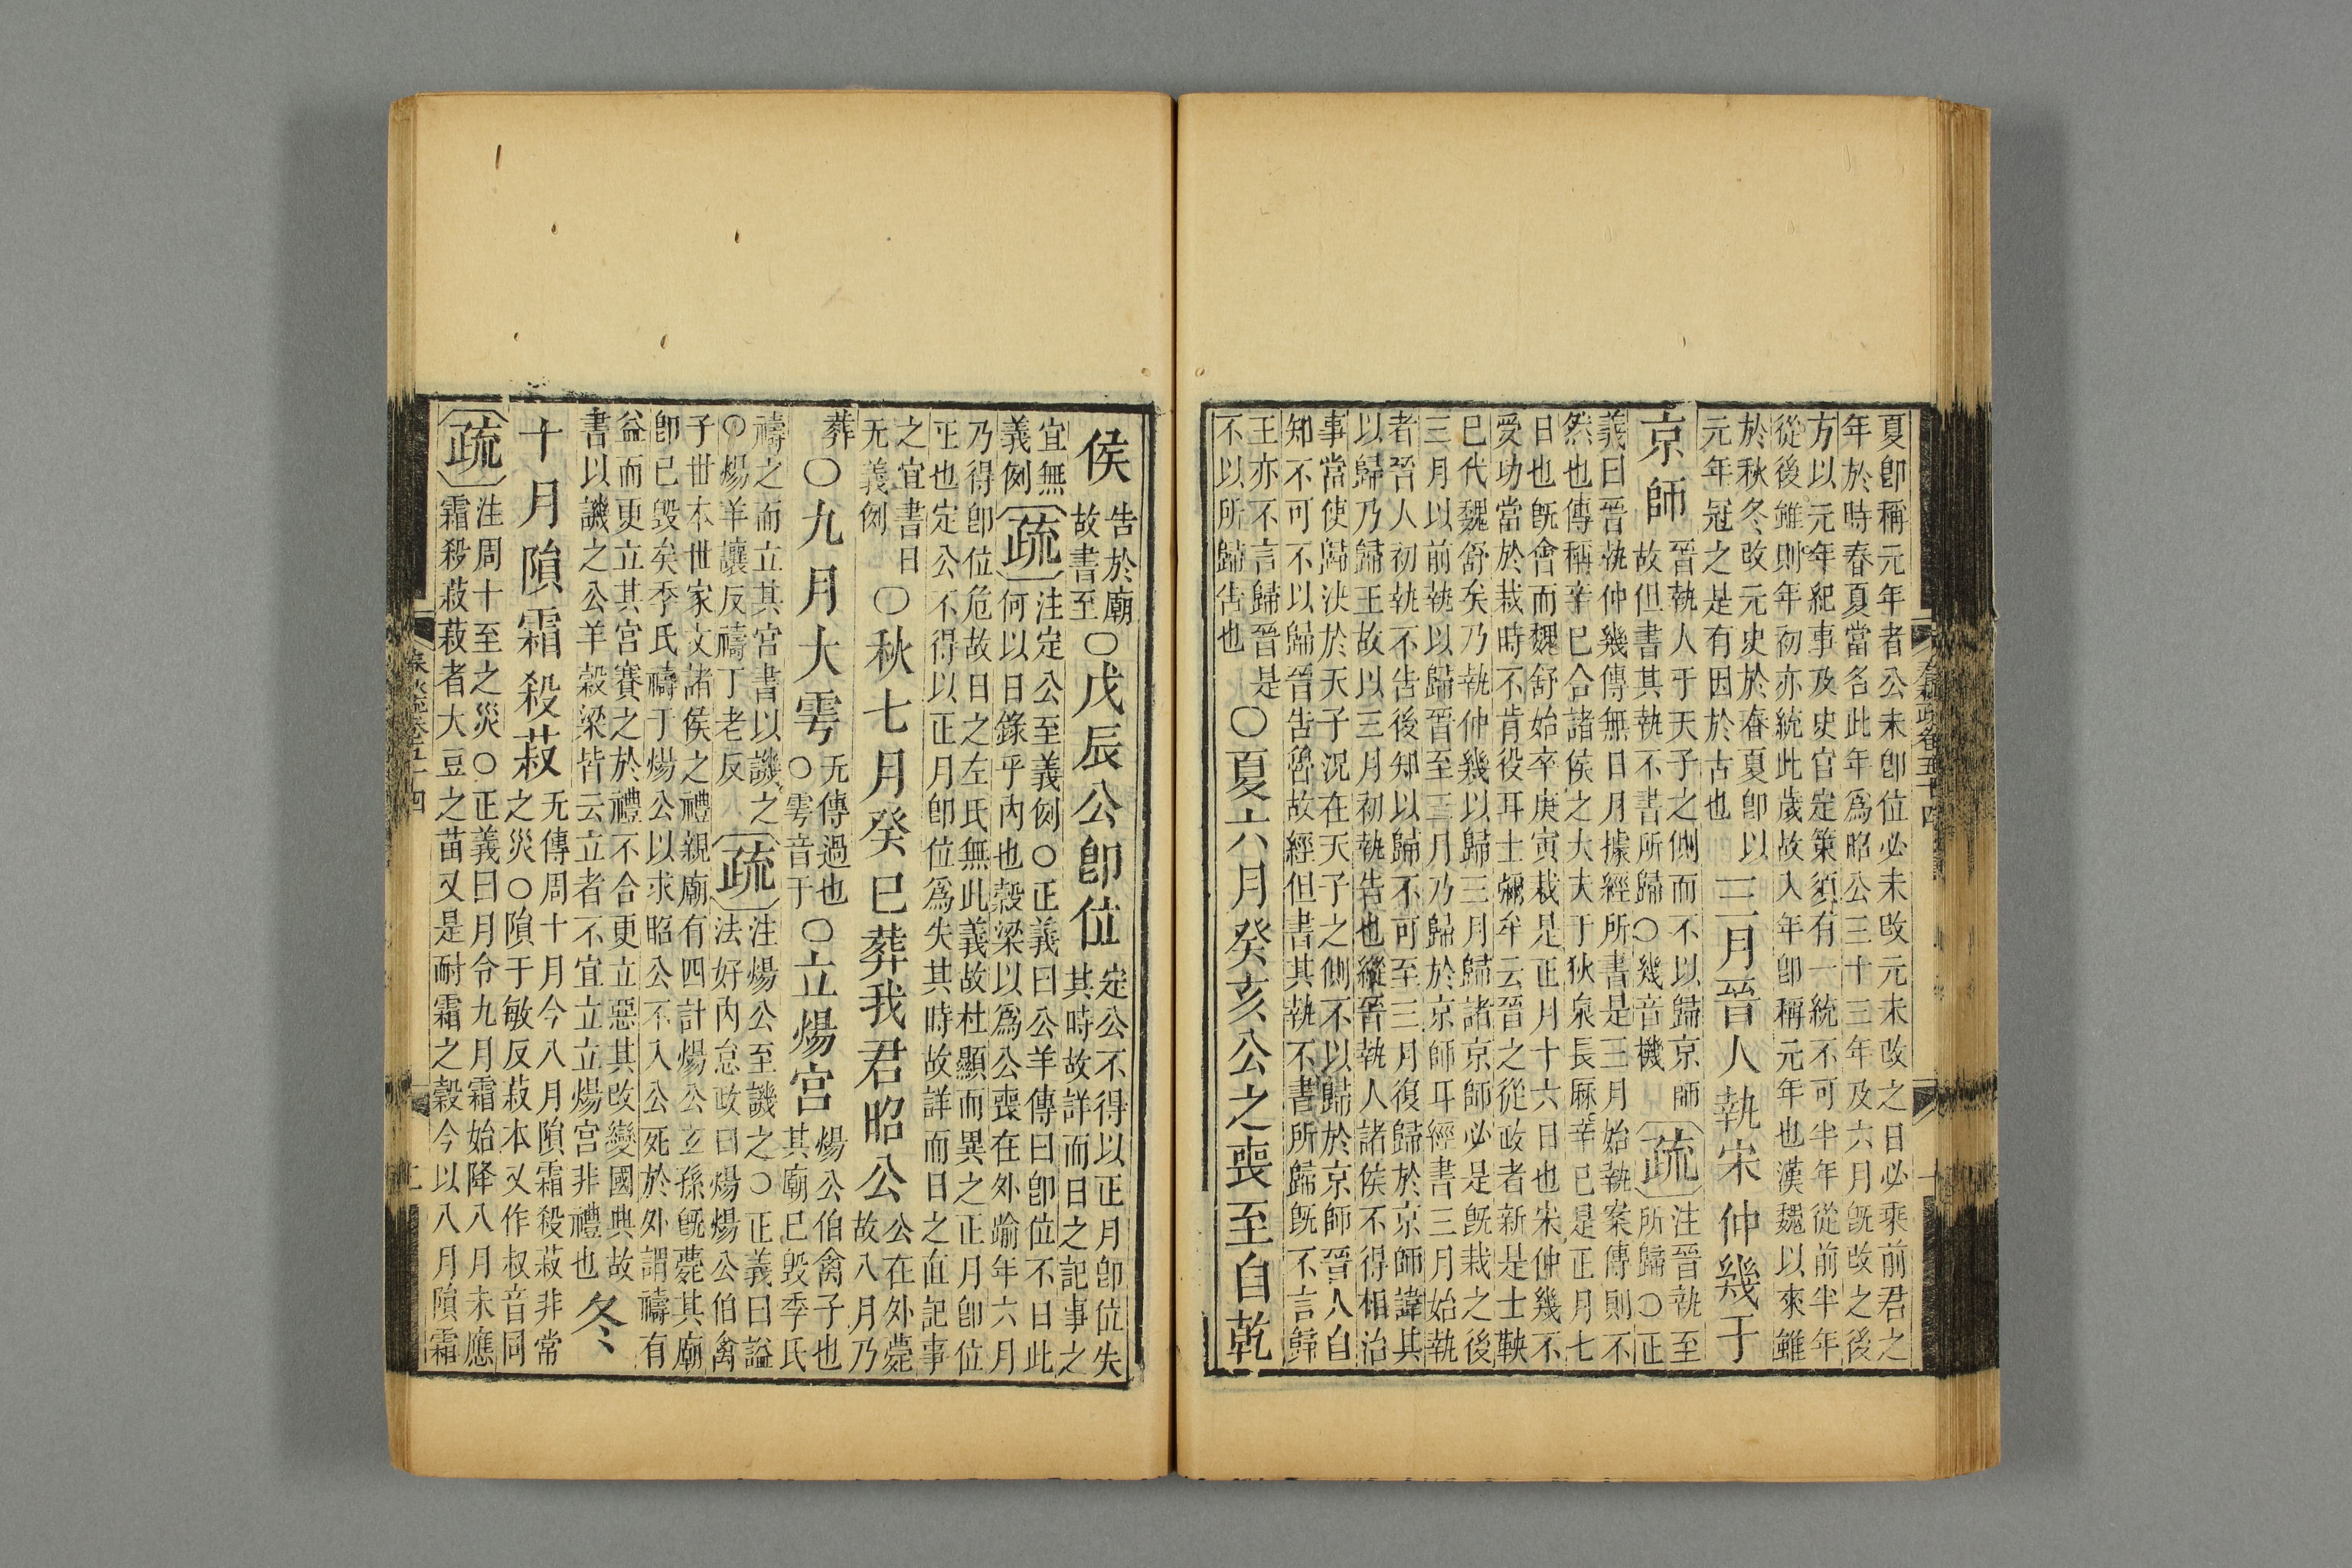 夏卽稱元年者公未卽位必未改元未改之日必乘前君之
年於時春夏當名此年爲昭公三十三年及六月旣改之後
方以元年紀事及史官定策須有一統不可半年從前半年
從後雖則年初亦統此歲故入年卽稱元年也漢魏以來雖
於秋冬改元史於春夏卽以
元年冠之是有因於古也
三月晉人執宋仲幾于
京師
晉執人于天子之側而不以歸京師
故但書其執不書所歸○幾音機
疏
注晉執至
所歸○正
義曰晉執仲幾傳無日月據經所書是三月始執案傳則不
然也傳稱辛巳合諸侯之大夫于狄泉長厤辛巳是正月七
日也旣會而魏舒始卒庚寅栽是正月十六日也宋仲幾不
受功當於栽時不肯役耳士彌牟云晉之從政者新是士鞅
巳代魏舒矣乃執仲幾以歸三月歸諸京師必是旣栽之後
三月以前執以歸晉至三月乃歸於京師耳經書三月始執
者晉人初執不告後知以歸不可至三月復歸於京師諱其
以歸乃歸王故以三月初執告也縱晉執人諸侯不得相治
事當使歸決於天子況在天子之側不以歸於京師晉人自
知不可不以歸晉告魯故經但書其執不書所歸旣不言歸
王亦不言歸晉是
不以所歸告也
○夏六月癸亥公之喪至自乾
侯
告於廟
故書至
○戊辰公卽位
定公不得以正月卽位失
其時故詳而日之記事之
宜無
義例
疏
注定公至義例○正義曰公羊傳曰卽位不日此
何以日錄乎內也穀梁以爲公喪在外踰年六月
乃得卽位危故日之左氏無此義故杜顯而異之正月卽位
正也定公不得以正月卽位爲失其時故詳而日之直記事
之宜書日
无義例
○秋七月癸巳葬我君昭公
公在外薨
故八月乃
葬
○九月大雩
无傳過也
○雩音于
○立煬宮
煬公伯禽子也
其廟已毀季氏
禱之而立其宮書以譏之
○煬羊讓反禱丁老反
疏
注煬公至譏之○正義曰謚
法好內怠政曰煬煬公伯禽
子世本世家文諸侯之禮親廟有四計煬公玄孫旣薨其廟
卽已毀矣季氏禱于煬公以求昭公不入公死於外謂禱有
益而更立其宮賽之於禮不合更立惡其改變國典故
書以譏之公羊穀梁皆云立者不宜立立煬宮非禮也
冬
十月隕霜殺菽
无傳周十月今八月隕霜殺菽非常
之災○隕于敏反菽本又作叔音同
疏
注周十至之災○正義曰月令九月霜始降八月未應
霜殺菽菽者大豆之苗又是耐霜之穀今以八月隕霜